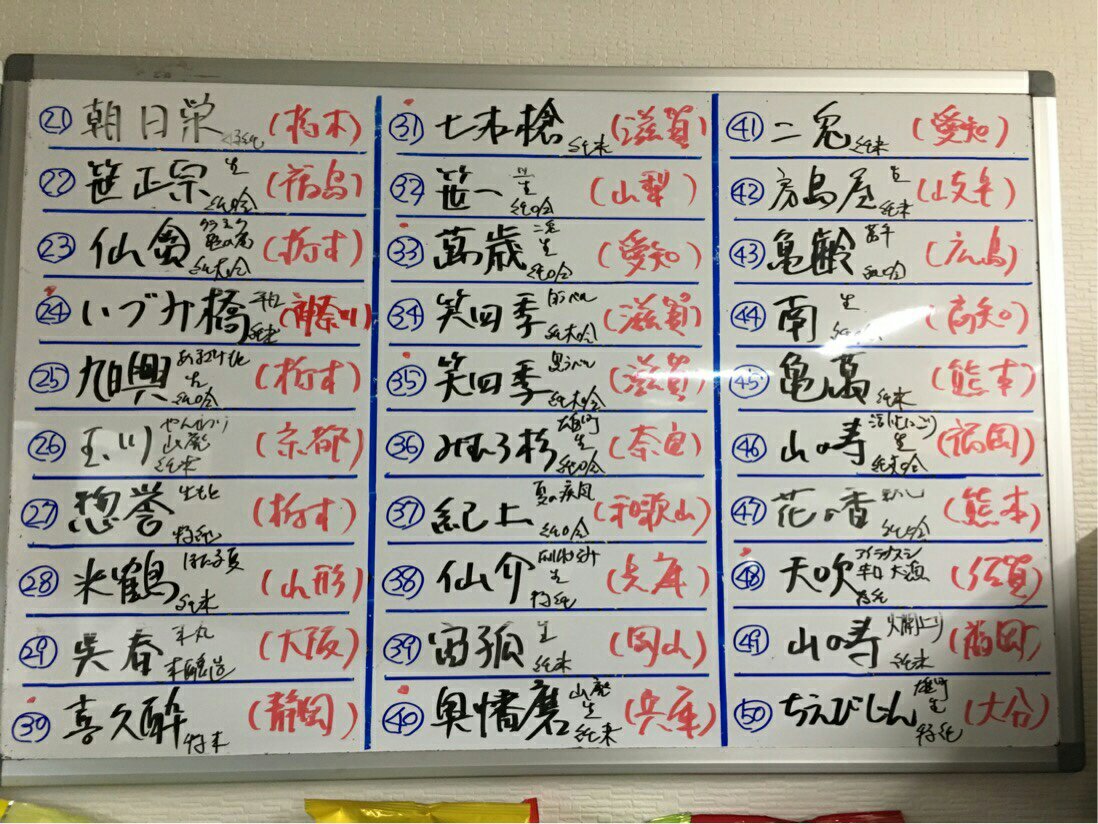 ㉑ 朝日栄 特純 (栃木)
㉒ 笹正宗 生 純吟 (福島)
㉓ 仙禽 亀の尾 純大吟 (栃木)
㉔ いづみ橋 純米 (神奈川)
㉕ 旭興 生 純吟 (栃木)
㉖ 玉川 山廃 純米 (京都)
㉗ 惣誉 生もと 特純 (栃木)
㉘ 米鶴 純米 (山形)
㉙ 呉春 本丸 本醸造 (大阪)
㉚ 喜久酔 特本 (静岡)
㉛ 七本槍 純米 (滋賀)
㉜ 笹一 生 純吟 (山梨)
㉝ 萬歳 生 純吟 (愛知)
㉞ 笑四季 純大吟 (滋賀)
㉟ 笑四季 黒らべる 純大吟 (滋賀)
㊱ みむろ杉 雄町 生 純吟 (奈良)
㊲ 紀土 夏の疾風 純吟 (和歌山)
㊳ 仙介 生 特純 (兵庫)
㊴ 宙狐 生 純米 (岡山)
㊵ 奥播磨 山廃 生 純米 (兵庫)
㊶ 二兎 純米 (愛知)
㊷ 房島屋 生 純米 (岐阜)
㊸ 亀齢 萬年 純吟 (広島)
㊹ 南 生 (高知)
㊺ 亀萬 純米 (熊本)
㊻ 山の寿 活性にごり 生 純吟 (福岡)
㊼ 花の香 純吟 (熊本)
㊽ 天吹 特純 (佐賀)
㊾ 山の寿 純米 (福岡)
㊿ ちえびじん 雄町 生 特純 (大分)